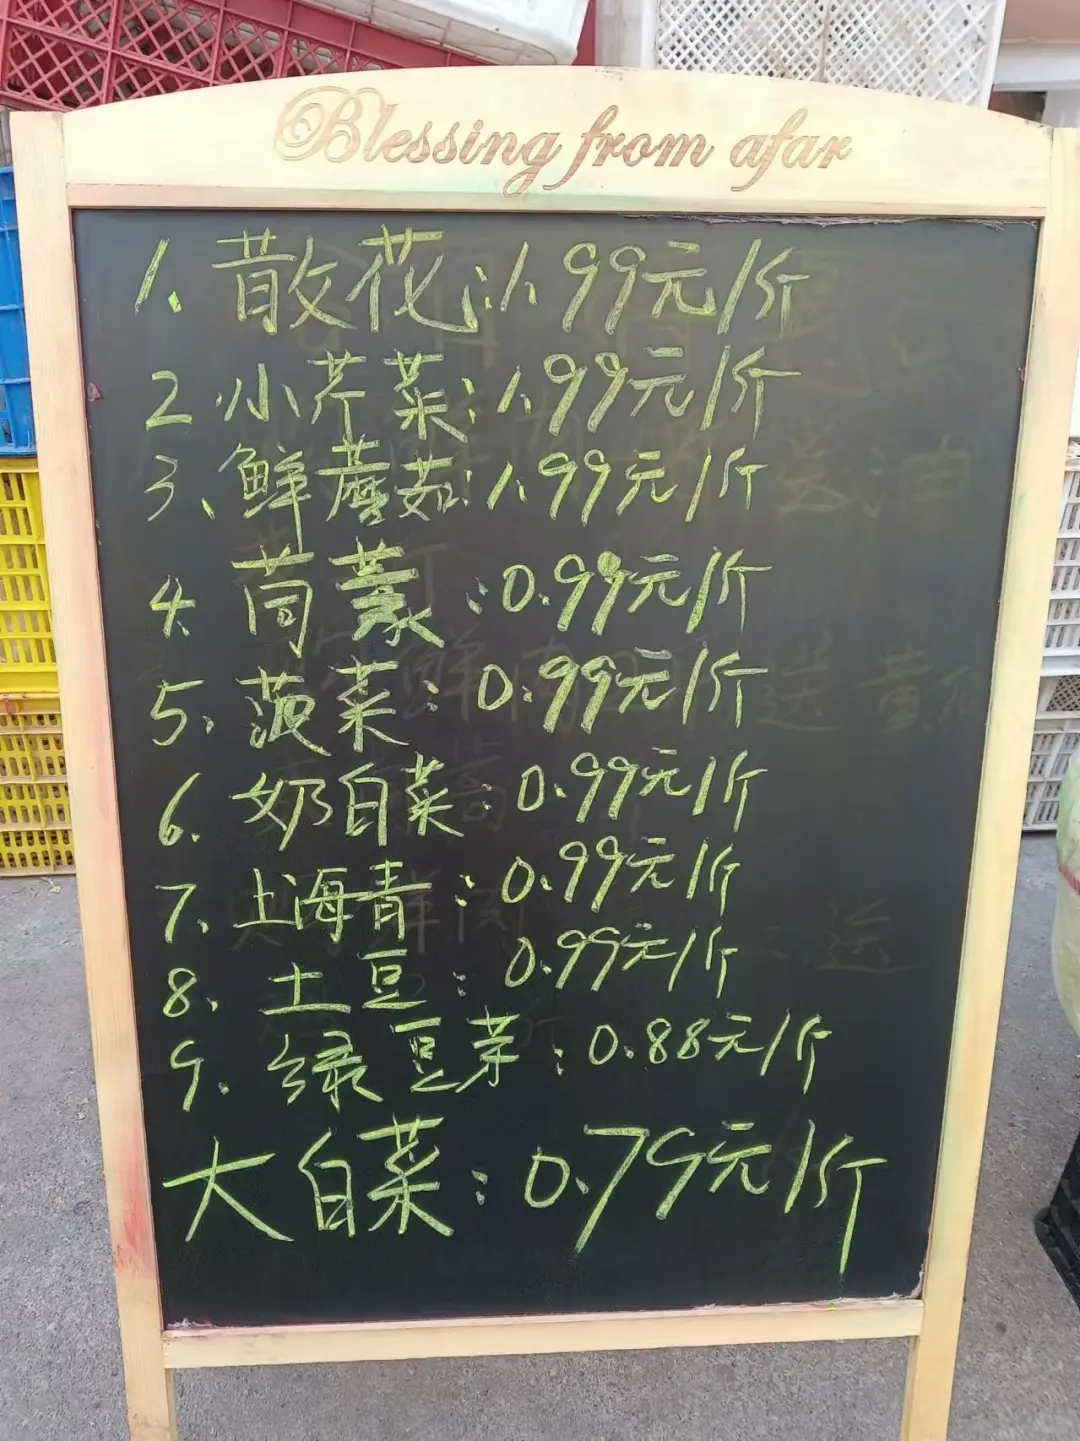 Blessing from afar
1、散花:1.99元/斤
2 小芹菜:1.99元/斤
3、鲜蘑菇:1.99元/斤
4. 茼蒿:0.99元/斤
5. 菠菜:0.99元/斤
6. 奶白菜:0.99元/斤
7、上海青:0.99元/斤
8、土豆:0.99元/斤
9. 绿豆芽:0.88元/斤
大白菜:0.79元/斤